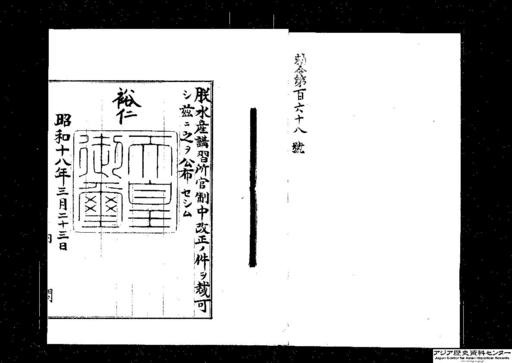 勅令第百六十八號
朕水産講習所官制中改正ノ件ヲ裁可
シ茲ニ之ヲ公布セシム
裕仁
天皇
御璽
昭和十八年三月二十三日
内閣
アジア歴史資料センター
Japan Center for Asian Historical Records